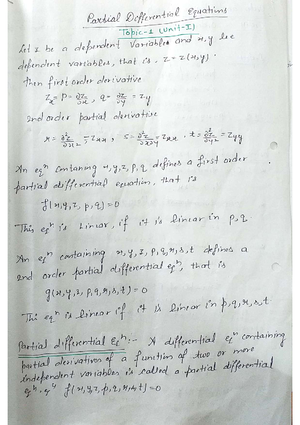 Partial Differential Equations
Topic-1 (Unit-I)
Let z be a dependent variable and x, y be
dependent variables, that is, z = z(x,y).
then first order derivative
Zx = p = ∂z/∂x, q = ∂z/∂y = Zy
2nd order partial derivative
r = ∂²z/∂x² = Zxx ; s = ∂²z/∂x∂y = Zxx . t = ∂²z/∂y² = Zyy
An eqn containing x, y, z, p, q defines a first order
partial differential equation, that is
f(x, y, z, p, q) = 0
This eqn is linear, if it is linear in p, q
An eqn containing x, y, z, p, q, r, s, t defines a
2nd order partial differential eqn, that is
g(x, y, z, p, q, r, s, t) = 0
This eqn is linear if it is linear in p, q, r, s, t
Partial differential Eqn :- A differential eqn containing
partial derivatives of a function of two or more
independent variables is called a partial differential
eqn. eg f(x, y, z, p, q, r, s, t) = 0